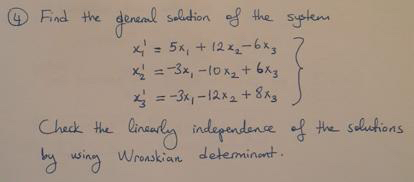 ④ Find the general solution of the system
x₁' = 5x₁ + 12x₂ - 6x₃
x₂' = -3x₁ - 10x₂ + 6x₃
x₃' = -3x₁ - 12x₂ + 8x₃
Check the linearly independence of the solutions
by using Wronskian determinant.